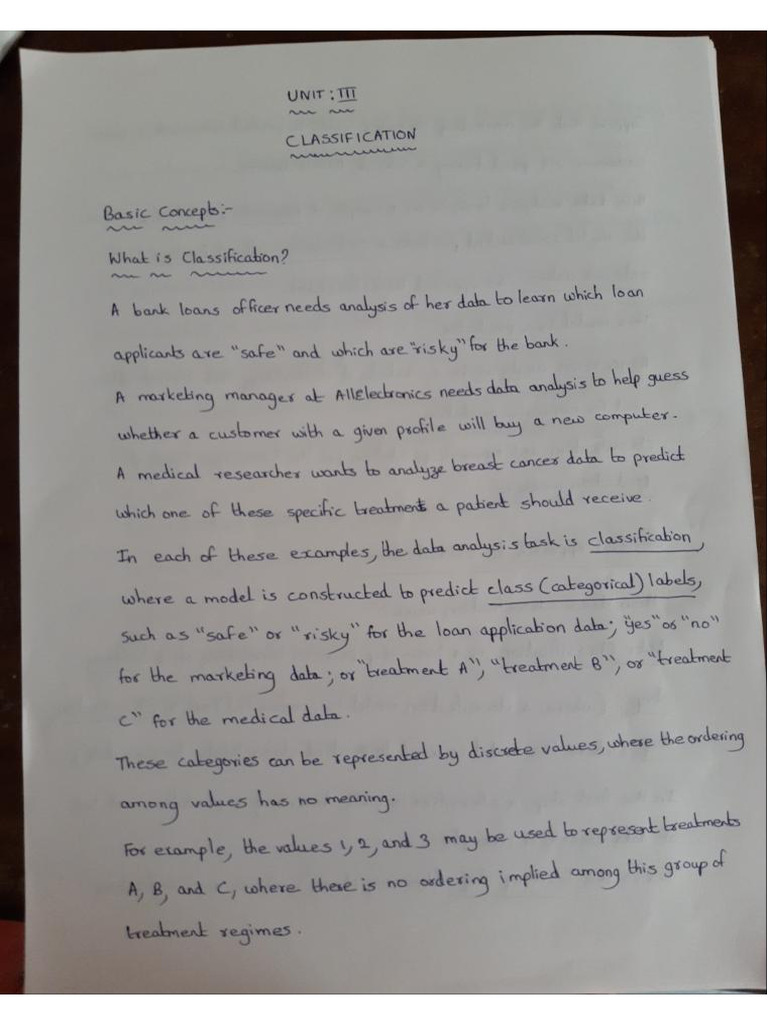 UNIT : III
CLASSIFICATION
Basic Concepts:-
What is Classification?
A bank loans officer needs analysis of her data to learn which loan
applicants are "safe" and which are "risky" for the bank.
A marketing manager at AllElectronics needs data analysis to help guess
whether a customer with a given profile will buy a new computer.
A medical researcher wants to analyze breast cancer data to predict
which one of these specific treatments a patient should receive.
In each of these examples, the data analysis task is classification,
where a model is constructed to predict class (categorical) labels,
such as "safe" or "risky" for the loan application data; "yes" or "no"
for the marketing data; or "treatment A", "treatment B", or "treatment
C" for the medical data.
These categories can be represented by discrete values, where the ordering
among values has no meaning.
For example, the values 1, 2, and 3 may be used to represent treatments
A, B, and C, where there is no ordering implied among this group of
treatment regimes.